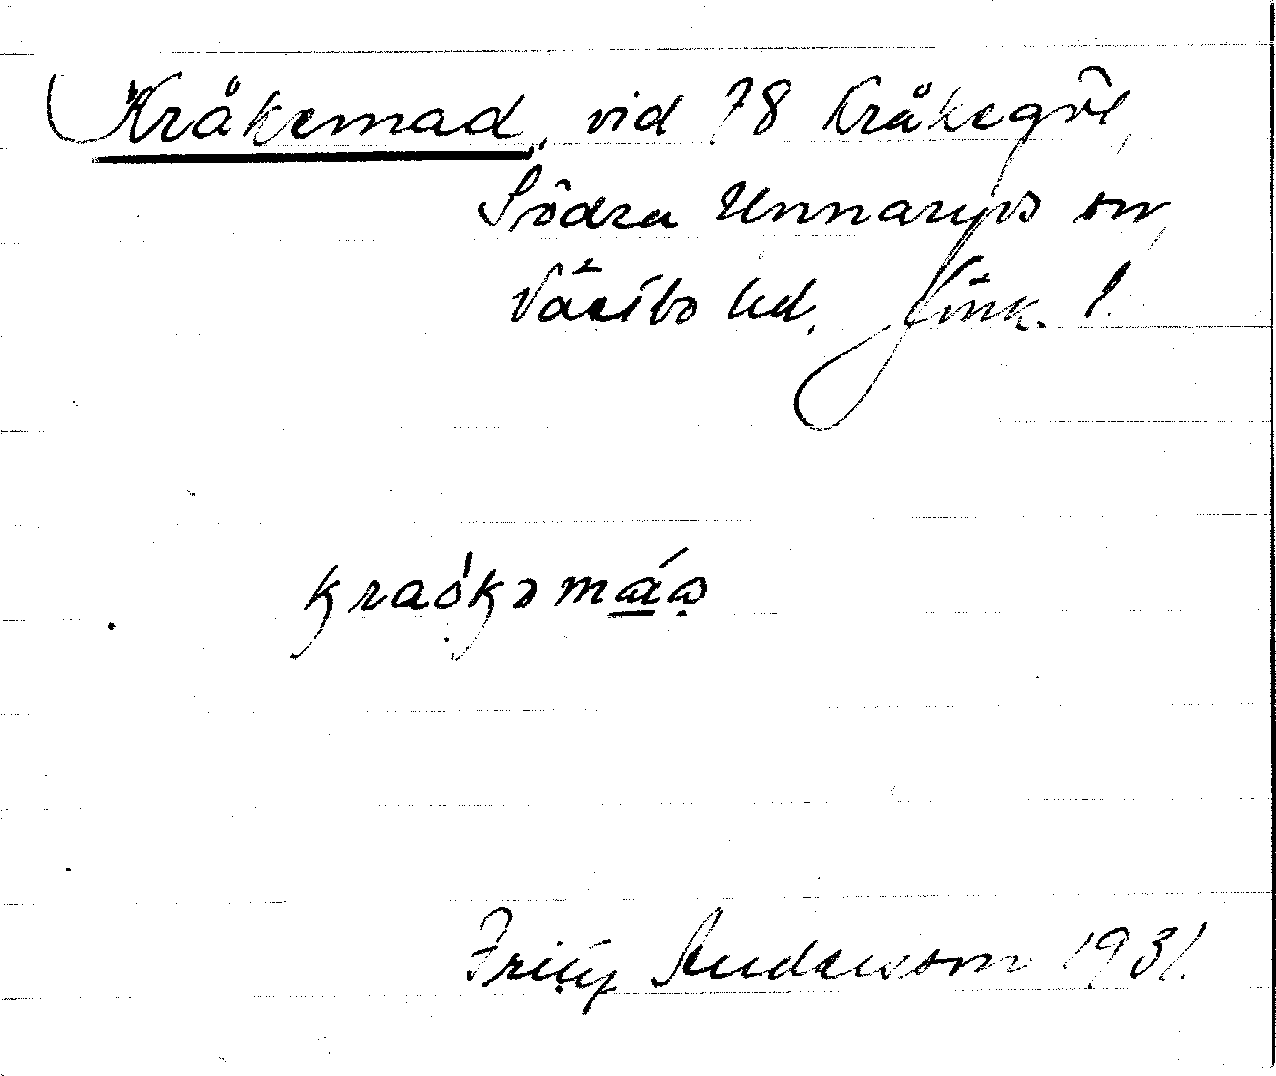 Kråkemad, vid 78 Kråkegöl,
Södra Unnaryds sn,
Västbo hd, Jönk. l.
kraókəmáa
Fritz Andersson 1931.